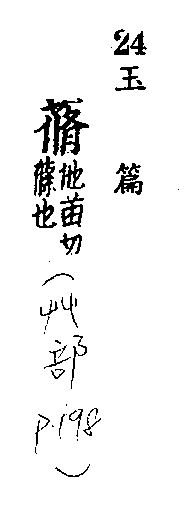 24
玉篇
蓨他苗切
蓧也
(艸部
p.198)